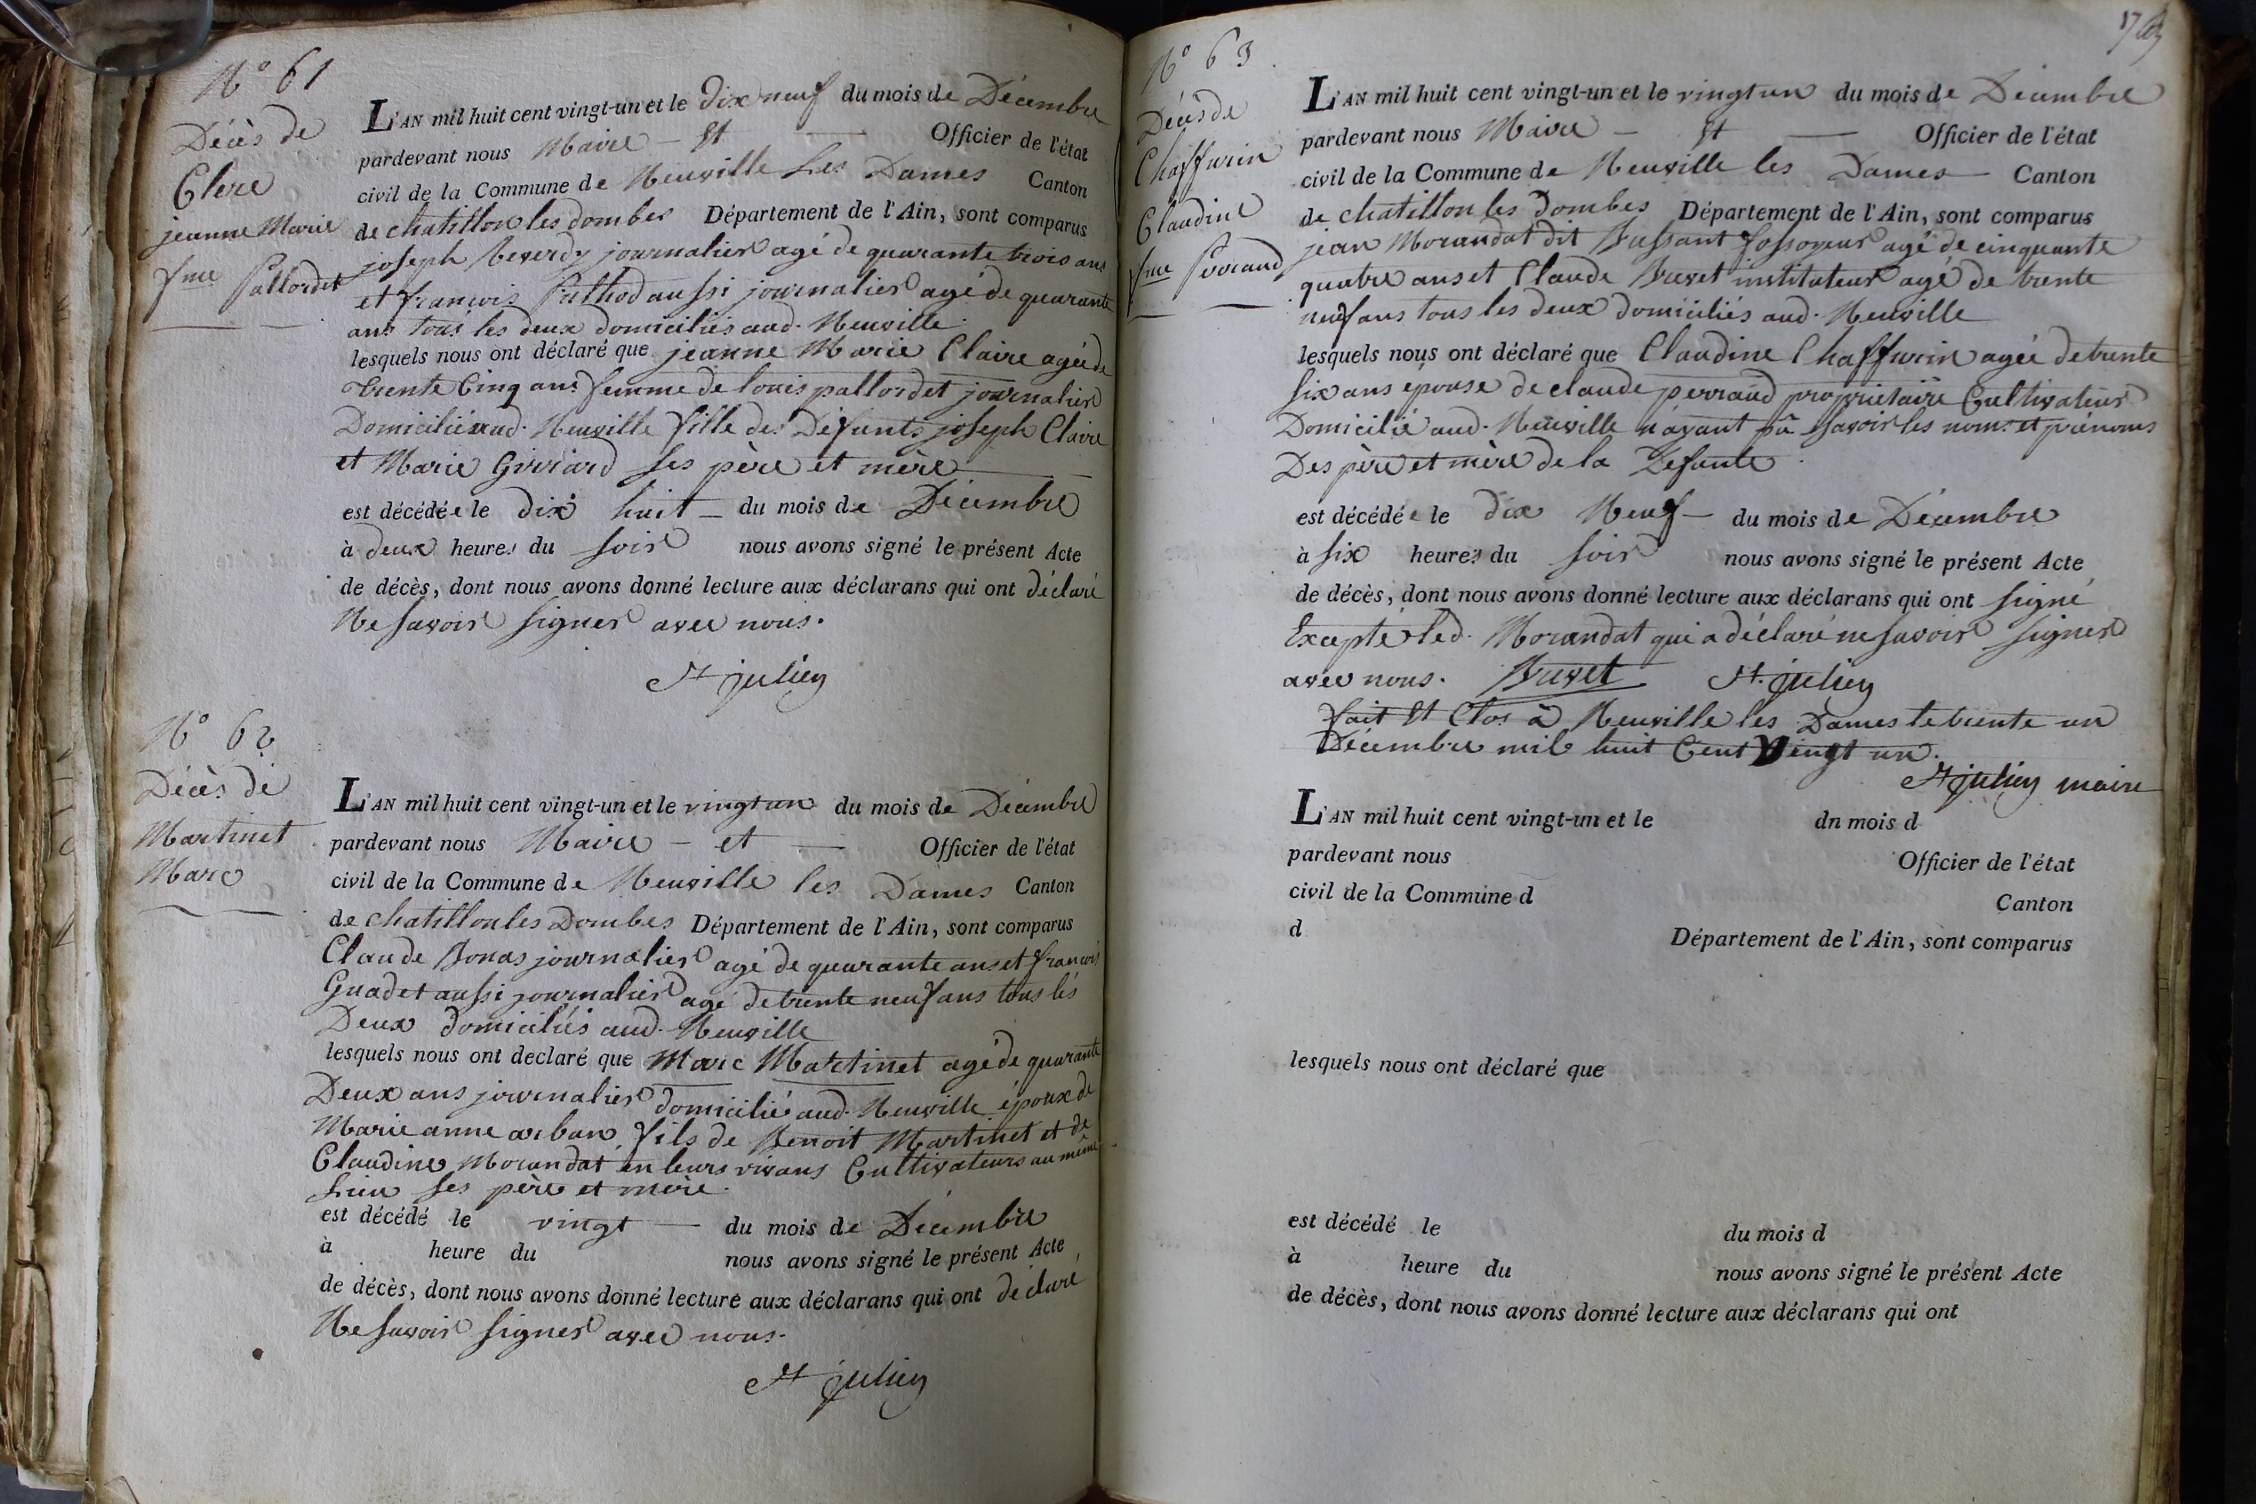 N° 61
Décès de
Clere
jeanne Marie
fme Pallordet
L'AN mil huit cent vingt-un et le Dix neuf du mois de Décembre
pardevant nous Maire - Et - Officier de l'état
civil de la Commune de Neuville Les Dames Canton
de chatillon les dombes Département de l'Ain, sont comparus
joseph Reverdy journalier agé de quarante trois ans
et françois Puthod aussi journalier agé de quarante
ans tous les deux domiciliés aud. Neuville.
lesquels nous ont déclaré que jeanne Marie Claire agée de
trente Cinq ans femme de louis pallordet journalier
Domicilié aud. Neuville fille des Défunts joseph Claire
et Marie Girrard ses père et mère
est décédée le dix huit - du mois de Décembre
à deux heures du soir nous avons signé le présent Acte
de décès, dont nous avons donné lecture aux déclarans qui ont déclaré
Ne savoir signer avec nous.
St julien
N° 62
Décès de
Martinet
Marc
L'AN mil huit cent vingt-un et le vingt un du mois de Décembre
pardevant nous Maire - et - Officier de l'état
civil de la Commune de Neuville les Dames Canton
de chatillon les Dombes Département de l'Ain, sont comparus
Claude Bonas journalier agé de quarante ans et françois
Guadet aussi journalier agé de trente neuf ans tous les
Deux domiciliés aud. Neuville
lesquels nous ont declaré que Marc Martinet agé de quarante
Deux ans journalier domicilié aud. Neuville époux de
Marie anne arban fils de Benoit Martinet et de
Claudine Morandat en leurs vivans Cultivateurs au même
Lieu ses père et mère.
est décédé le vingt - du mois de Décembre
à heure du nous avons signé le présent Acte
de décès, dont nous avons donné lecture aux déclarans qui ont déclaré
Ne savoir signer avec nous.
St julien
N° 63.
Décès de
Chaffurin
Claudine
fme Perraud
L'AN mil huit cent vingt-un et le vingt un du mois de Décembre
pardevant nous Maire - Et - Officier de l'état
civil de la Commune de Neuville les Dames Canton
de chatillon les Dombes Département de l'Ain, sont comparus
jean Morandat dit Bussant fossoyeur agé de cinquante
quatre ans et Claude Buret instituteur agé de trente
neuf ans tous les deux domiciliés aud. Neuville
lesquels nous ont déclaré que Claudine Chaffurin agée de trente
six ans épouse de claude perraud propriétaire Cultivateur
Domicilié aud. Neuville n'ayant pû savoir les noms et prénoms
Des père et mère de la Défunte.
est décédée le dix Neuf - du mois de Décembre
à six heures du soir nous avons signé le présent Acte
de décès, dont nous avons donné lecture aux déclarans qui ont signé
Excepté led. Morandat qui a déclaré ne savoir signer
avec nous. Buret St. julien
fait Et Clos à Neuville les Dames le trente un
Décembre mil huit Cent Vingt un.
St julien maire
L'AN mil huit cent vingt-un et le dn mois d
pardevant nous Officier de l'état
civil de la Commune d Canton
d Département de l'Ain, sont comparus
lesquels nous ont déclaré que
est décédé le du mois d
à heure du nous avons signé le présent Acte
de décès, dont nous avons donné lecture aux déclarans qui ont